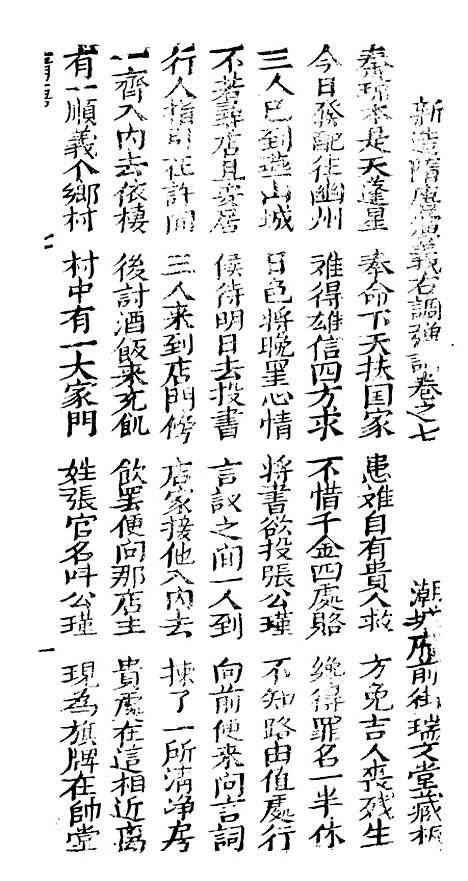 新造隋唐演義古調彈詞卷之七 潮城府前街瑞文堂藏板
秦瓊本是天蓬星 奉命下天扶国家 患难自有貴人救 方免吉人喪残生
今日發配往幽州 难得雄信四方求 不惜千金四處賂 總得罪名一半休
三人已到燕山城 日色將晚罣心情 將書欲投張公瑾 不知路由值處行
不若尋店且安居 候待明日去投書 言訟之間一人到 向前便来问言詞
行人指引在許间 三人来到店門傍 店家接他入内去 揀了一所清净房
一齊入内去依棲 後討酒飯来充飢 飲罢便问那店主 貴處在這相近离
有一順義个鄉村 村中有一大家門 姓張官名叫公瑾 現為旗牌在帥堂
七 一